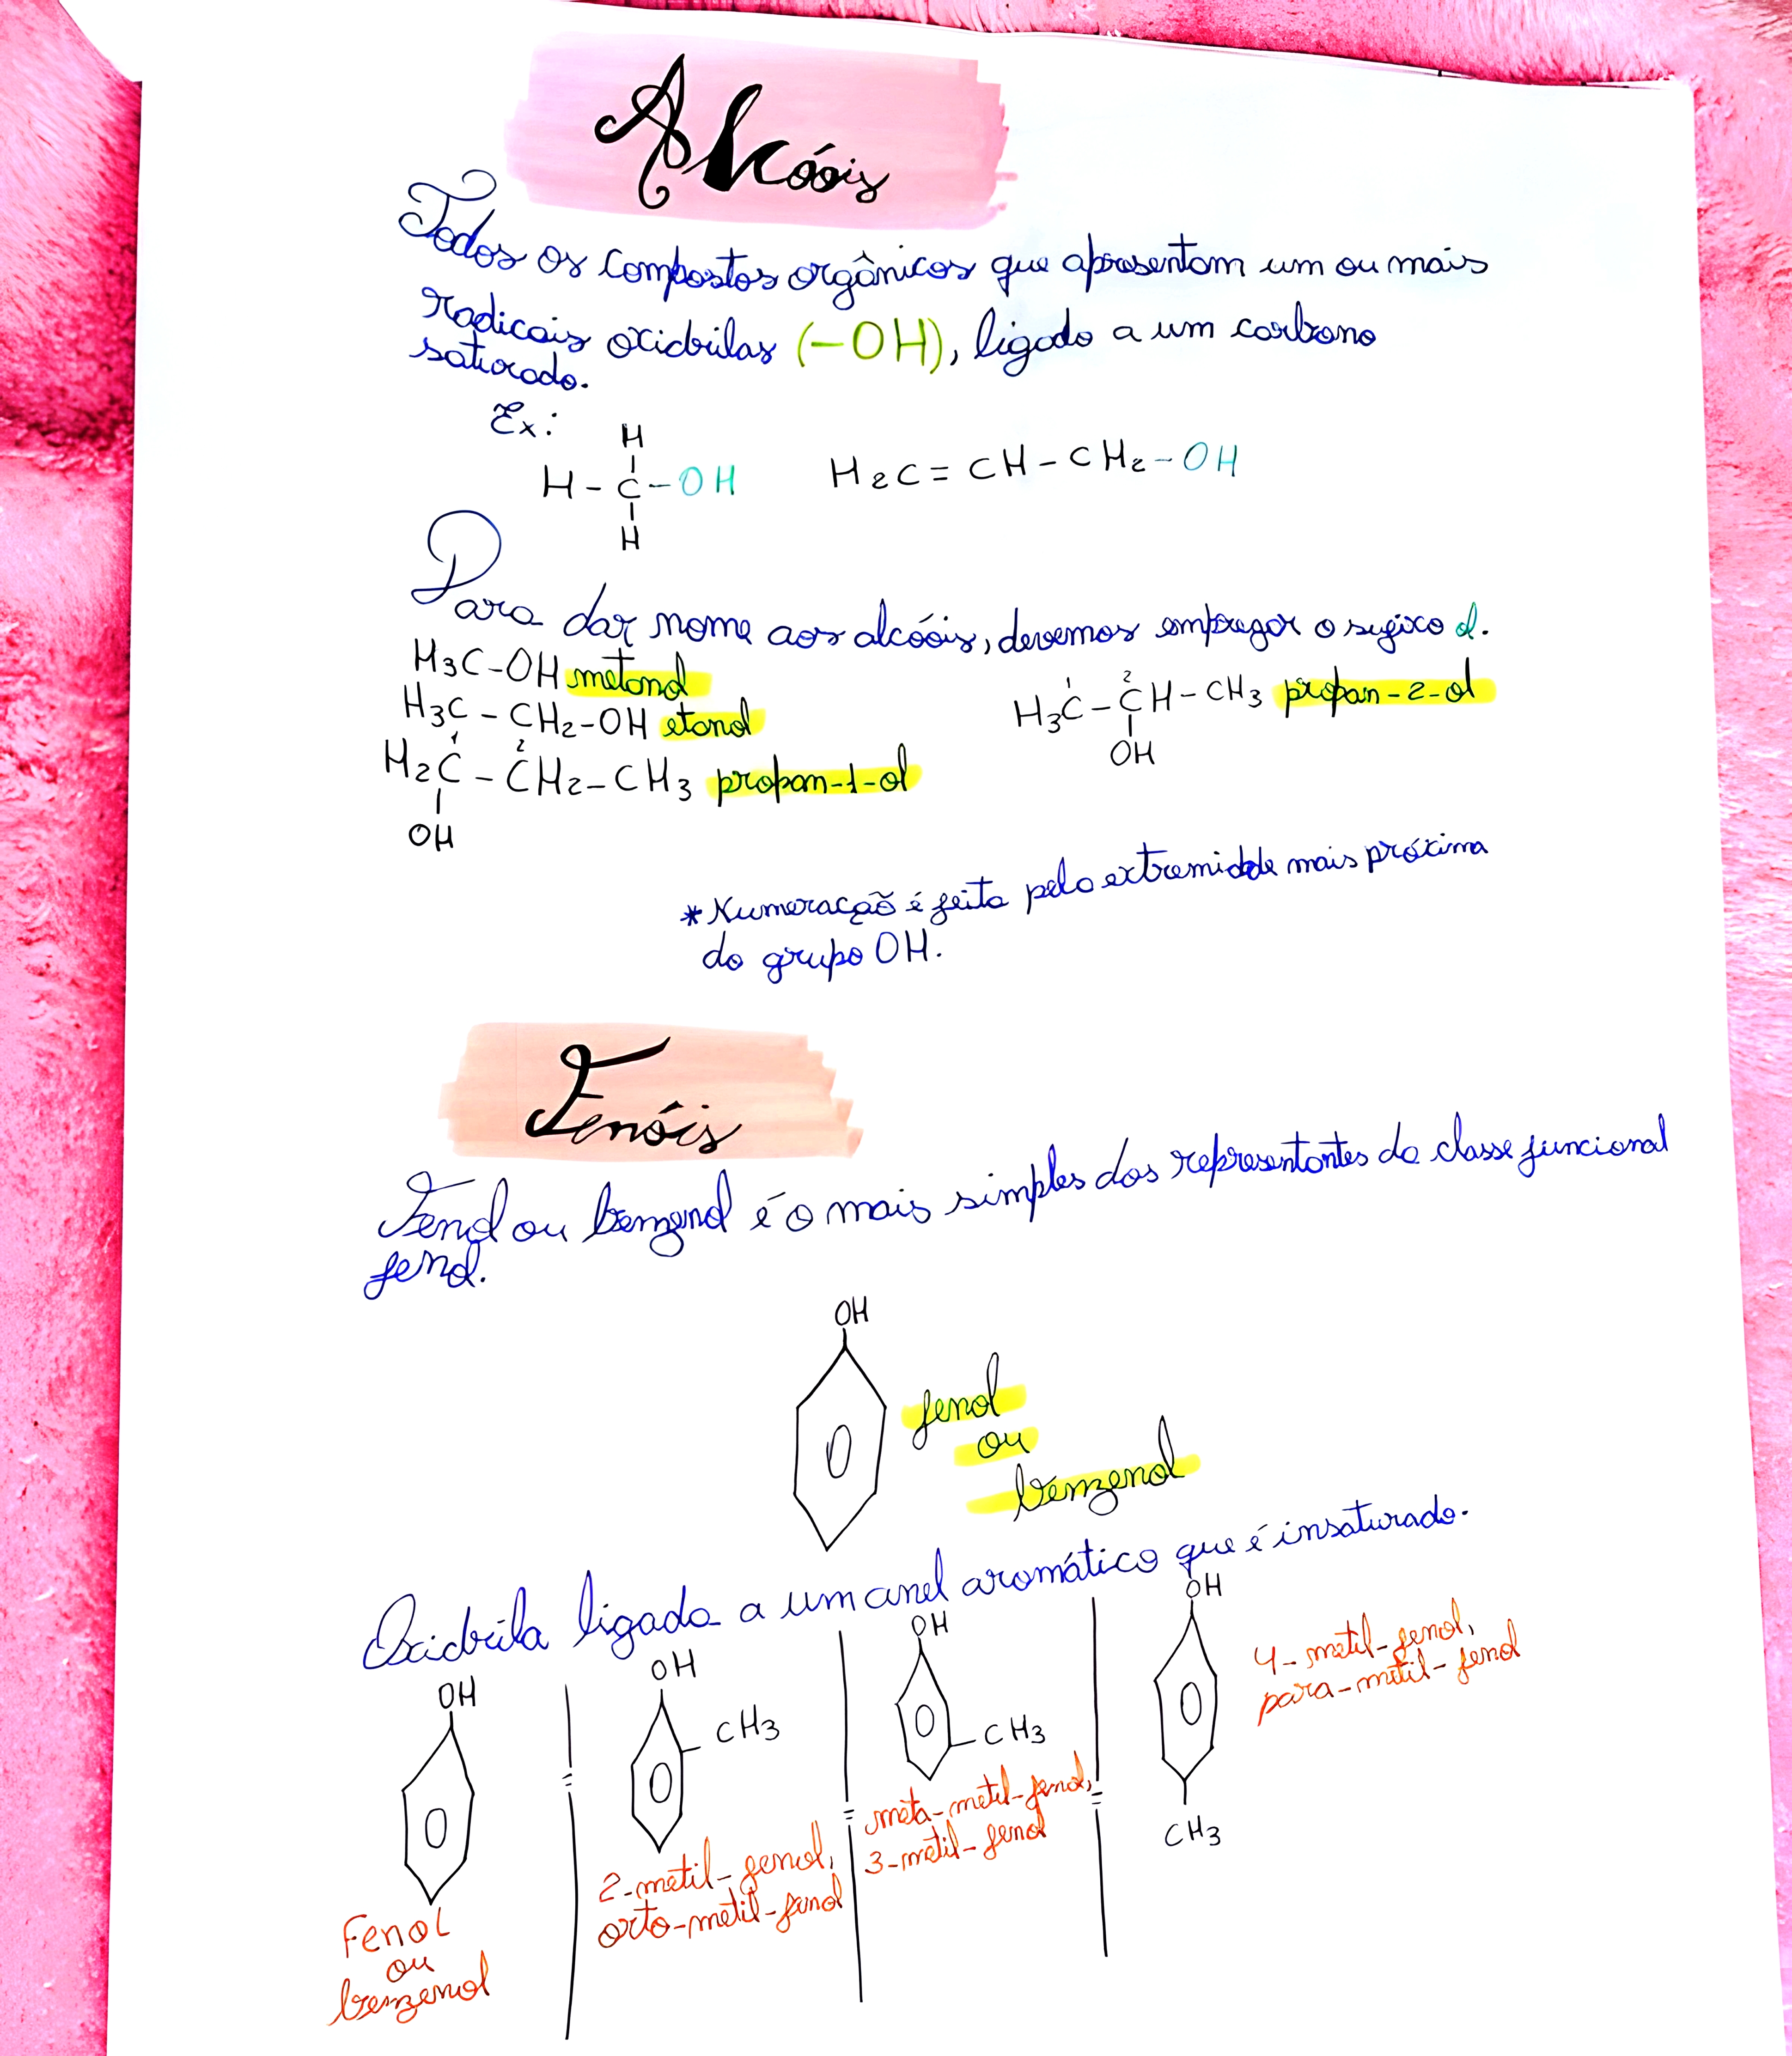 Alcóois
Todos os compostos orgânicos que apresentam um ou mais
radicais oxidrilas (-OH), ligado a um carbono
saturado.
Ex:
H
H - C - OH
H
H2C = CH - CH2 - OH
Para dar nome aos alcóois, devemos empregar o sufixo ol.
H3C-OH metanol
H3C - CH2-OH etanol
1 2
H2C - CH2-CH3 propan-1-ol
OH
1 2
H3C - CH - CH3 propan-2-ol
OH
*Numeração é feita pela extremidade mais próxima
do grupo OH.
Fenóis
Fenol ou benzenol é o mais simples dos representantes da classe funcional
fenol.
OH
fenol
ou
benzenol
Oxidrila ligada a um anel aromático que é insaturado.
OH
Fenol
ou
benzenol
OH
CH3
2-metil-fenol,
orto-metil-fenol
OH
CH3
meta-metil-fenol,
3-metil-fenol
OH
CH3
4-metil-fenol,
para-metil-fenol